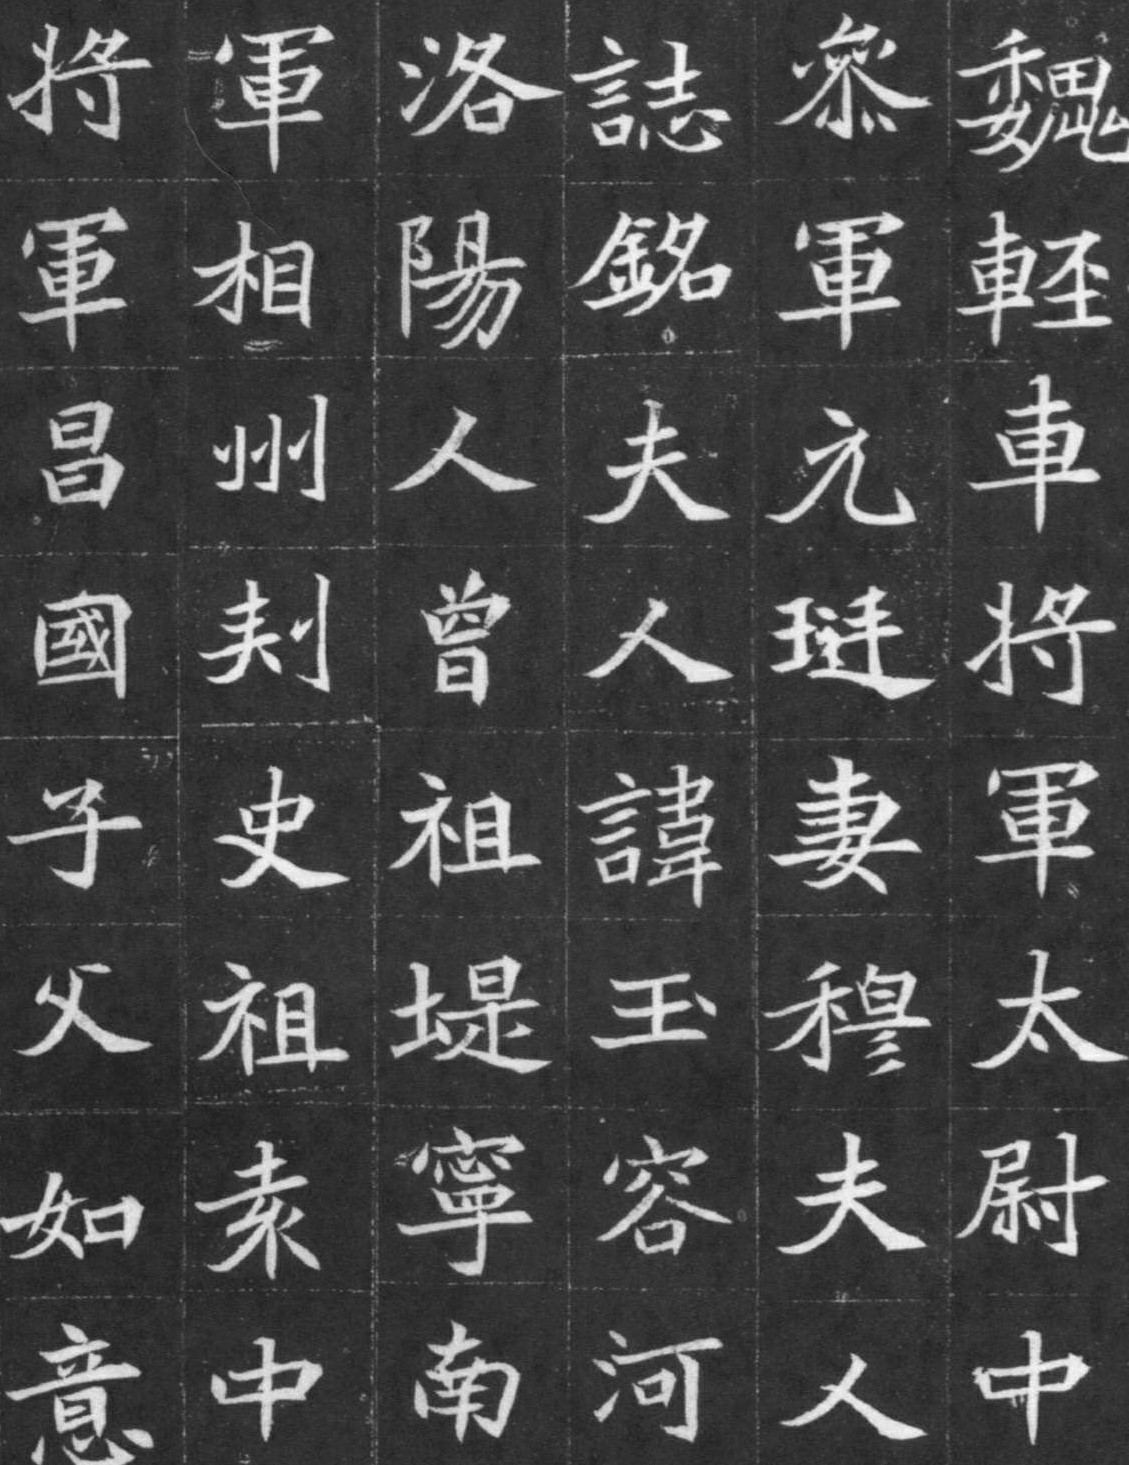 魏輕車将軍太尉中
叅軍元珽妻穆夫人
誌銘夫人諱玉容河
洛陽人曾祖堤寧南
軍相州刾史祖袁中
将軍昌國子父如意